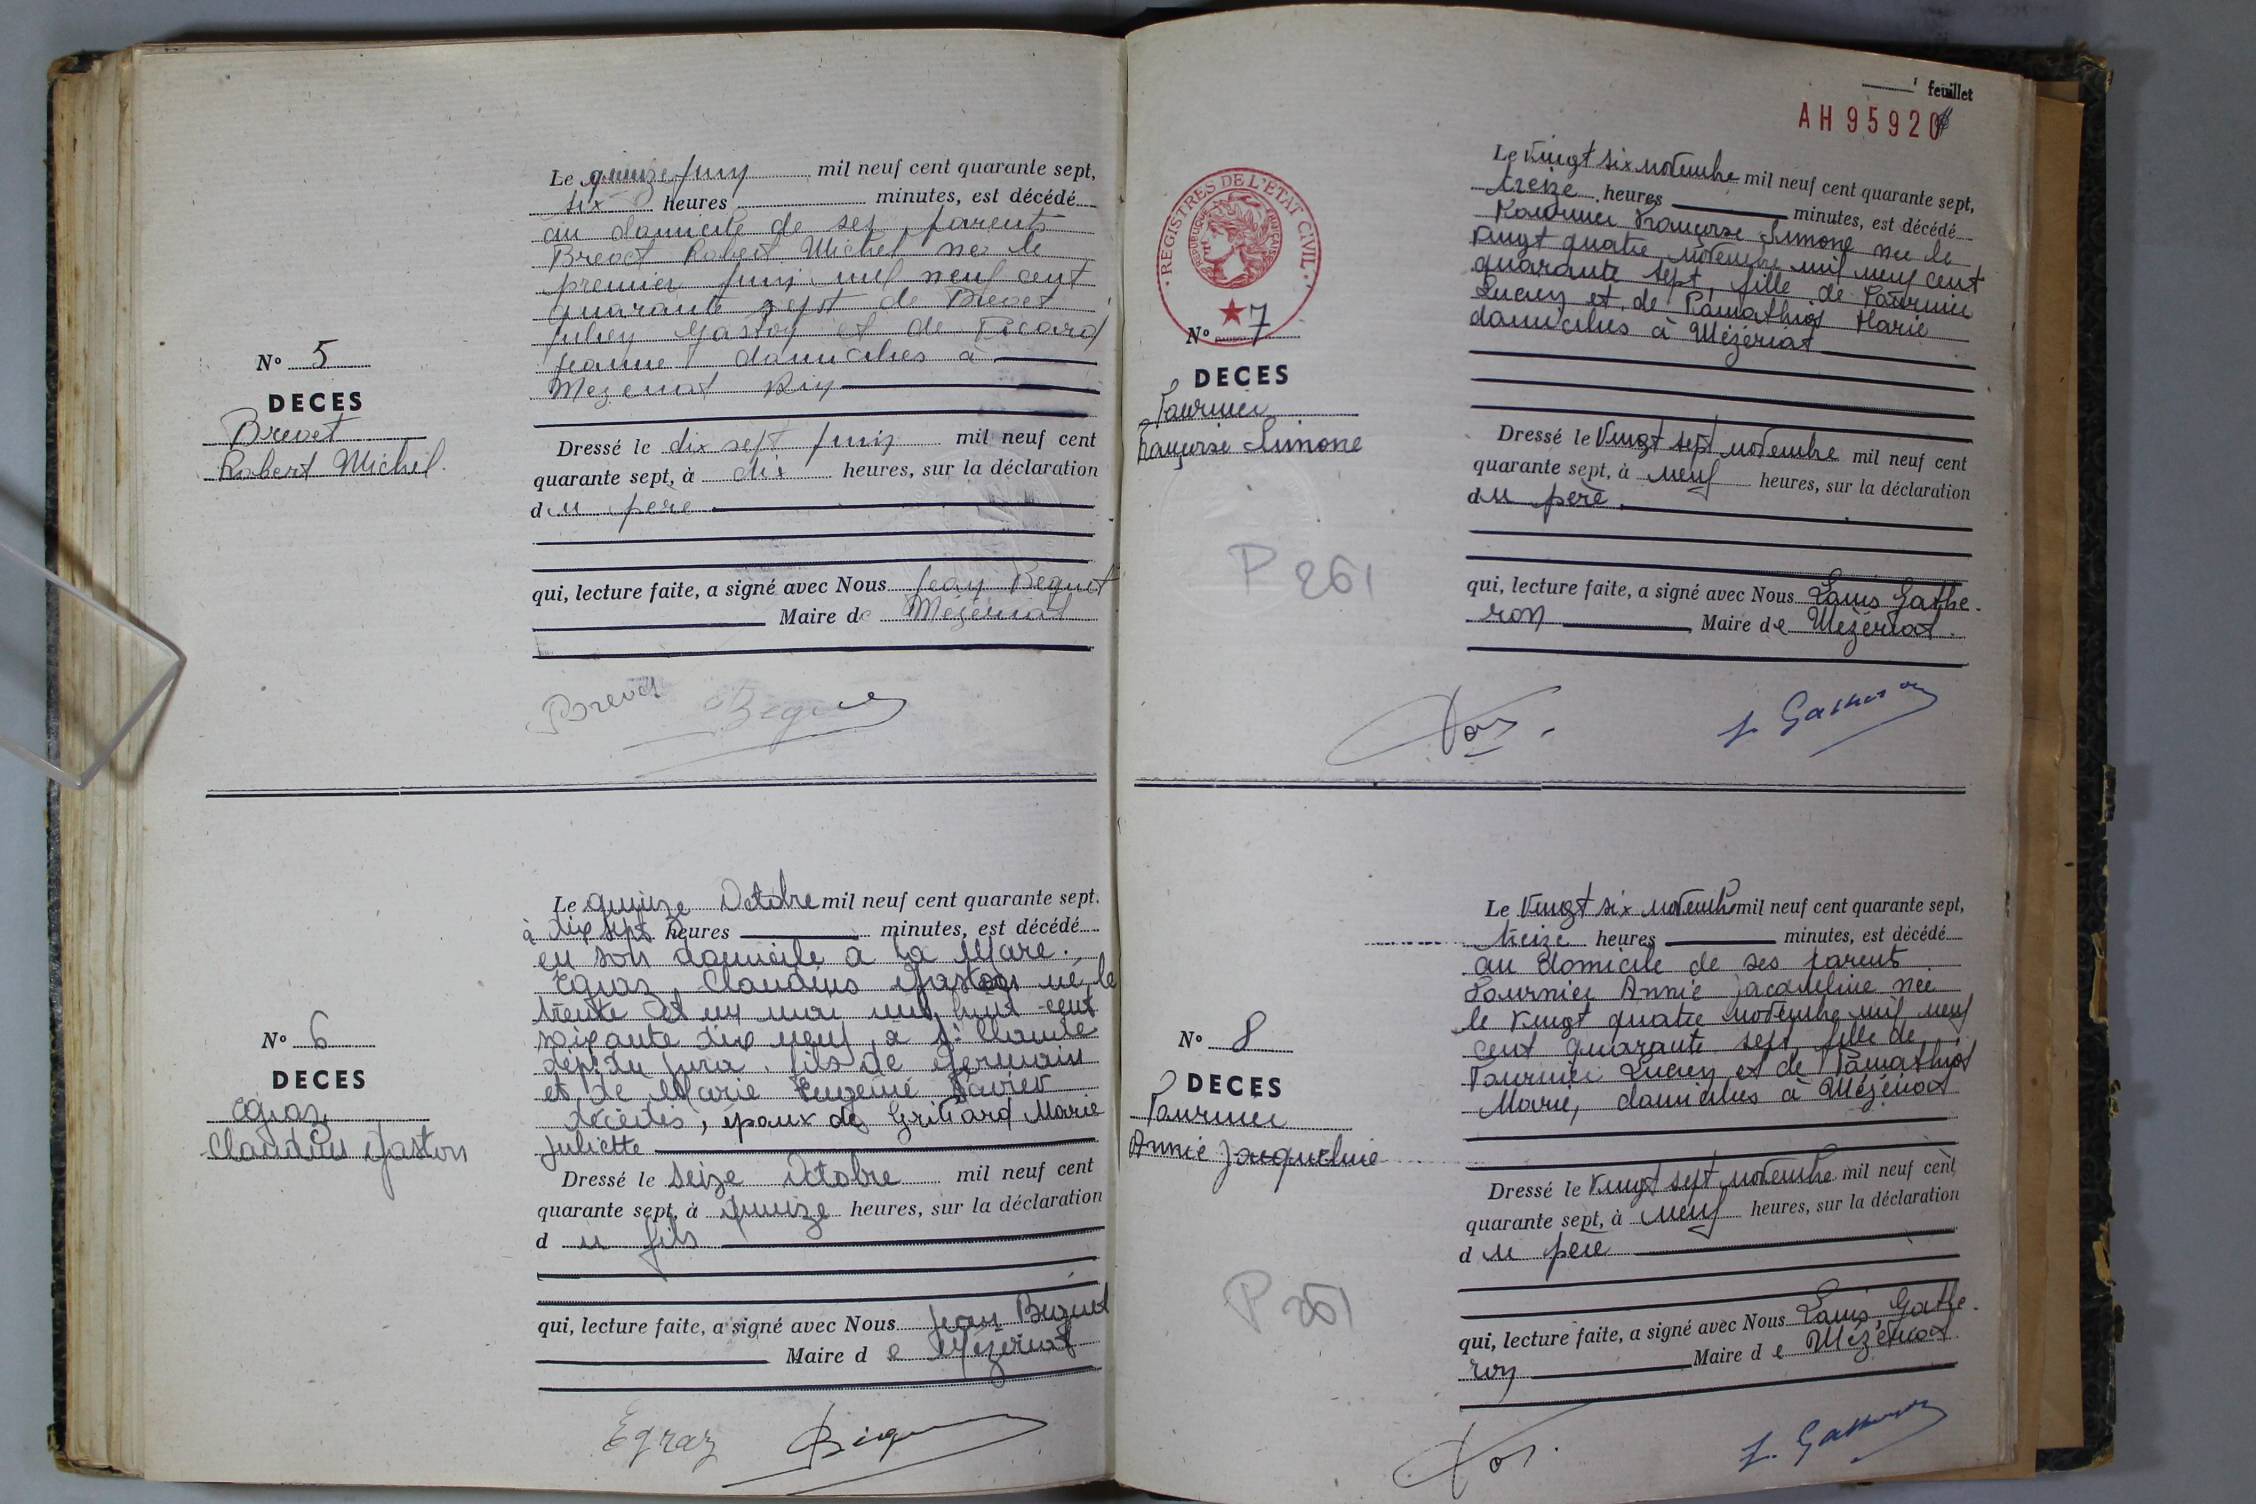 Le quinze juin mil neuf cent quarante sept,
six heures minutes, est décédé
au domicile de ses parents
Brevet Robert Michel né le
premier juin mil neuf cent
quarante sept de Brevet
Julien Gaston et de Picard
Jeanne domiciliés à
Mézériat Ain
N° 5
DECES
Brevet
Robert Michel.
Dressé le dix sept juin mil neuf cent
quarante sept, à dix heures, sur la déclaration
du père
qui, lecture faite, a signé avec Nous Jean Beguet
Maire de Mézériat
Brevet
Le quinze Octobre mil neuf cent quarante sept.
à dix sept heures minutes, est décédé
en son domicile à la Mare.
Egraz Claudius Gaston né le
trente et un mai mil huit cent
soixante dix neuf à St Claude
dépt du Jura. fils de Germain
et de Marie Eugénie
décédés, époux de Grillard Marie
Juliette
N° 6
DECES
Egraz
Claudius Gaston
Dressé le seize Octobre mil neuf cent
quarante sept, à quinze heures, sur la déclaration
du fils
qui, lecture faite, a signé avec Nous Jean Beguet
Maire de Mézériat
Egraz
feuillet
AH 95920
REGISTRES DE L'ETAT CIVIL
REPUBLIQUE FRANÇAISE
Le vingt six novembre mil neuf cent quarante sept,
treize heures minutes, est décédé
Fournier Françoise Simone née le
vingt quatre novembre mil neuf cent
quarante sept, fille de Fournier
Lucien et de Pamathios Marie
domiciliés à Mézériat
N° 7
DECES
Fournier
Françoise Simone
Dressé le vingt sept novembre mil neuf cent
quarante sept, à neuf heures, sur la déclaration
du père.
P 261
qui, lecture faite, a signé avec Nous Louis Gathe-
ron Maire de Mézériat.
L. Gatheron
Le vingt six novembre mil neuf cent quarante sept,
treize heures minutes, est décédé
au domicile de ses parents
Fournier Annie Jacqueline née
le vingt quatre novembre mil neuf
cent quarante sept fille de
Fournier Lucien et de Pamathios
Marie, domiciliés à Mézériat
N° 8
DECES
Fournier
Annie Jacqueline
Dressé le vingt sept novembre mil neuf cent
quarante sept, à neuf heures, sur la déclaration
du père
P 261
qui, lecture faite, a signé avec Nous Louis Gathe-
ron Maire de Mézériat
L. Gatheron